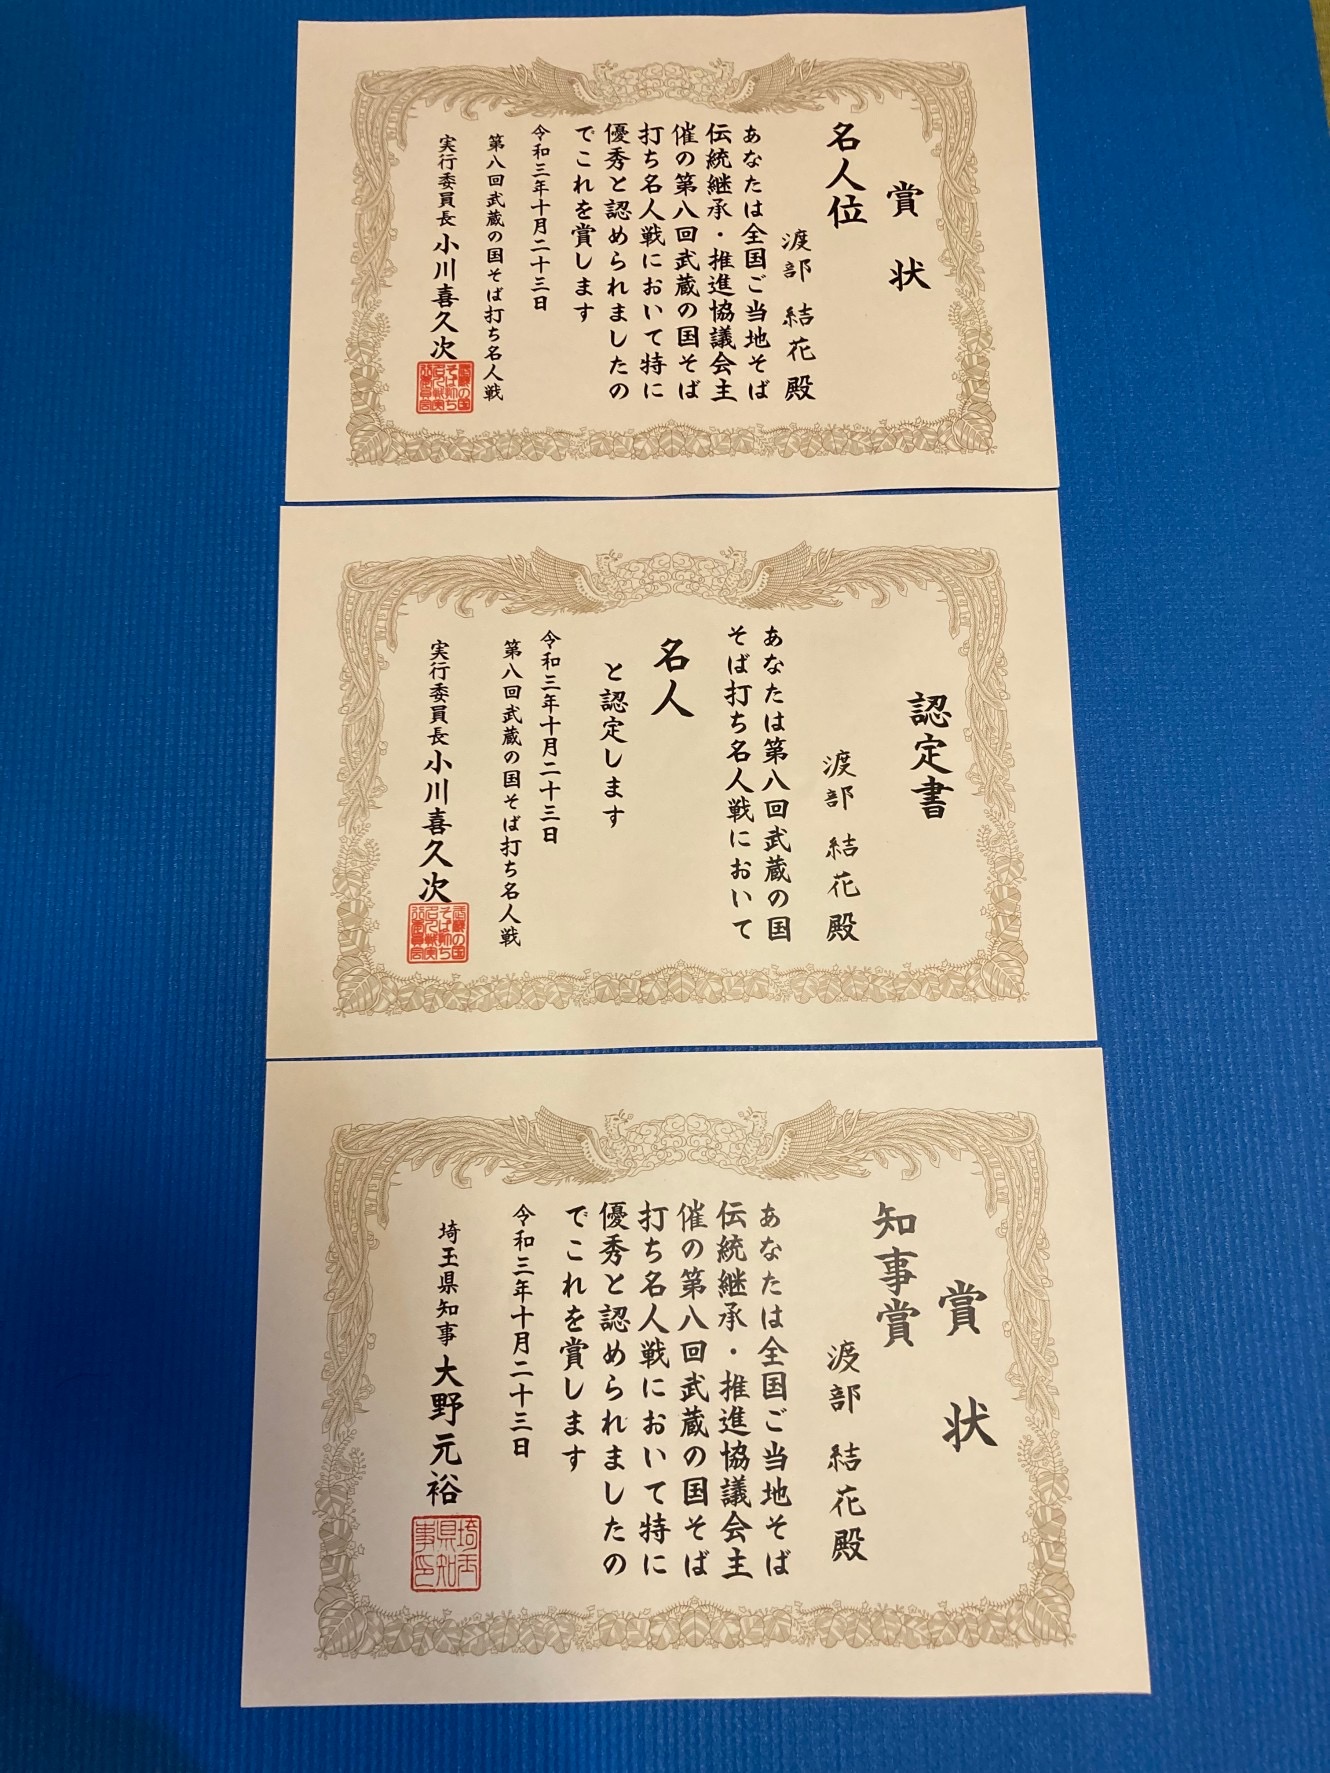 賞状
名人位
渡部 結花 殿
あなたは全国ご当地そば
伝統継承・推進協議会主
催の第八回武蔵の国そば
打ち名人戦において特に
優秀と認められましたの
でこれを賞します
令和三年十月二十三日
第八回武蔵の国そば打ち名人戦
実行委員長 小川喜久次
武蔵の国
そば打ち
名人戦実
行委員会
認定書
渡部 結花 殿
あなたは第八回武蔵の国
そば打ち名人戦において
名人
と認定します
令和三年十月二十三日
第八回武蔵の国そば打ち名人戦
実行委員長 小川喜久次
武蔵の国
そば打ち
名人戦実
行委員会
賞状
知事賞
渡部 結花 殿
あなたは全国ご当地そば
伝統継承・推進協議会主
催の第八回武蔵の国そば
打ち名人戦において特に
優秀と認められましたの
でこれを賞します
令和三年十月二十三日
埼玉県知事 大野元裕
埼玉
県知
事印